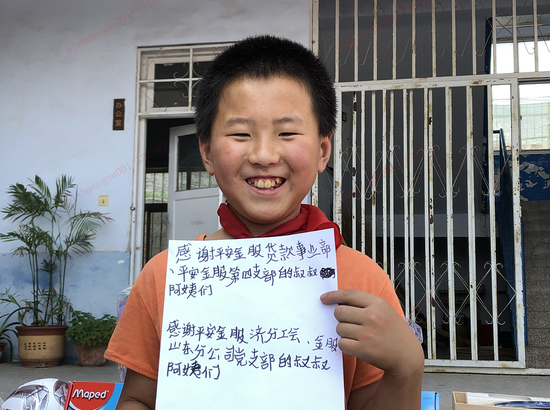 办公室
感谢平安金服贷款事业部
、平安金服第四支部的叔叔
阿姨们
感谢平安金服济分工会、金服
山东分公司党支部的叔叔
阿姨们
Maped